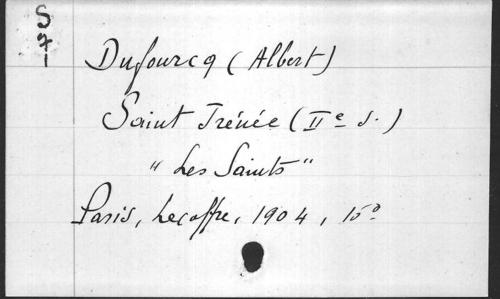 S
71
Dufourcq (Albert)
Saint Irénée (IIe s.)
"Les Saints"
Paris, Lecoffre, 1904, 15°